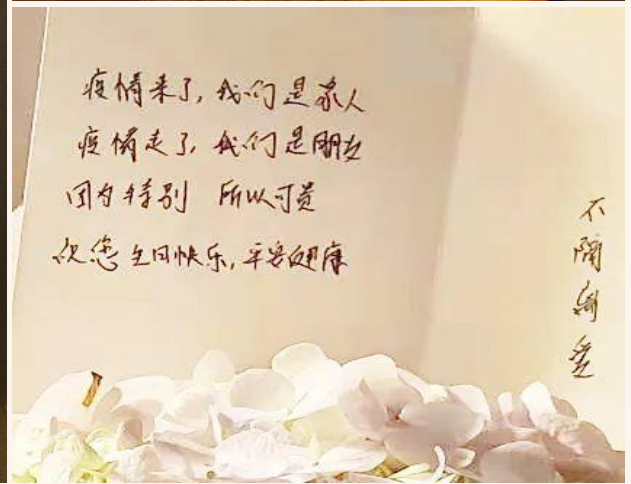 疫情来了,我们是家人
疫情走了,我们是朋友
因为特别 所以可贵
祝您生日快乐,平安健康
不隔离爱